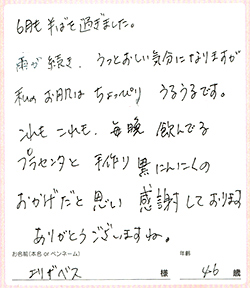 6月も半ばを過ぎました。
雨が続き、うっとおしい気分になりますが
私のお肌はちょっぴりうるうるです。
これもこれも、毎晩飲んでる
プラセンタと手作り黒にんにくの
おかげだと思い感謝しております
ありがとうございますね。
お名前(本名 or ペンネーム) 年齢
エリザベス 様 46 歳